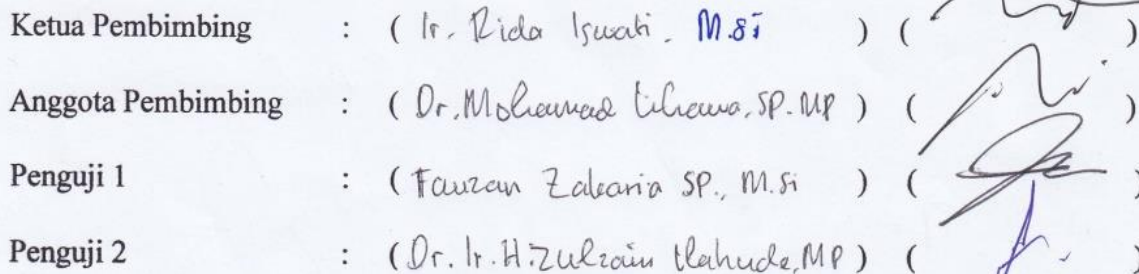 Ketua Pembimbing : ( Ir. Rida Iswati. M.Si ) ( )
Anggota Pembimbing : ( Dr. Mohamad Lihawa, SP. MP ) ( )
Penguji 1 : ( Fauzan Zakaria SP., M.Si ) ( )
Penguji 2 : ( Dr. Ir. H. Zulzain Ilahude, MP ) ( )